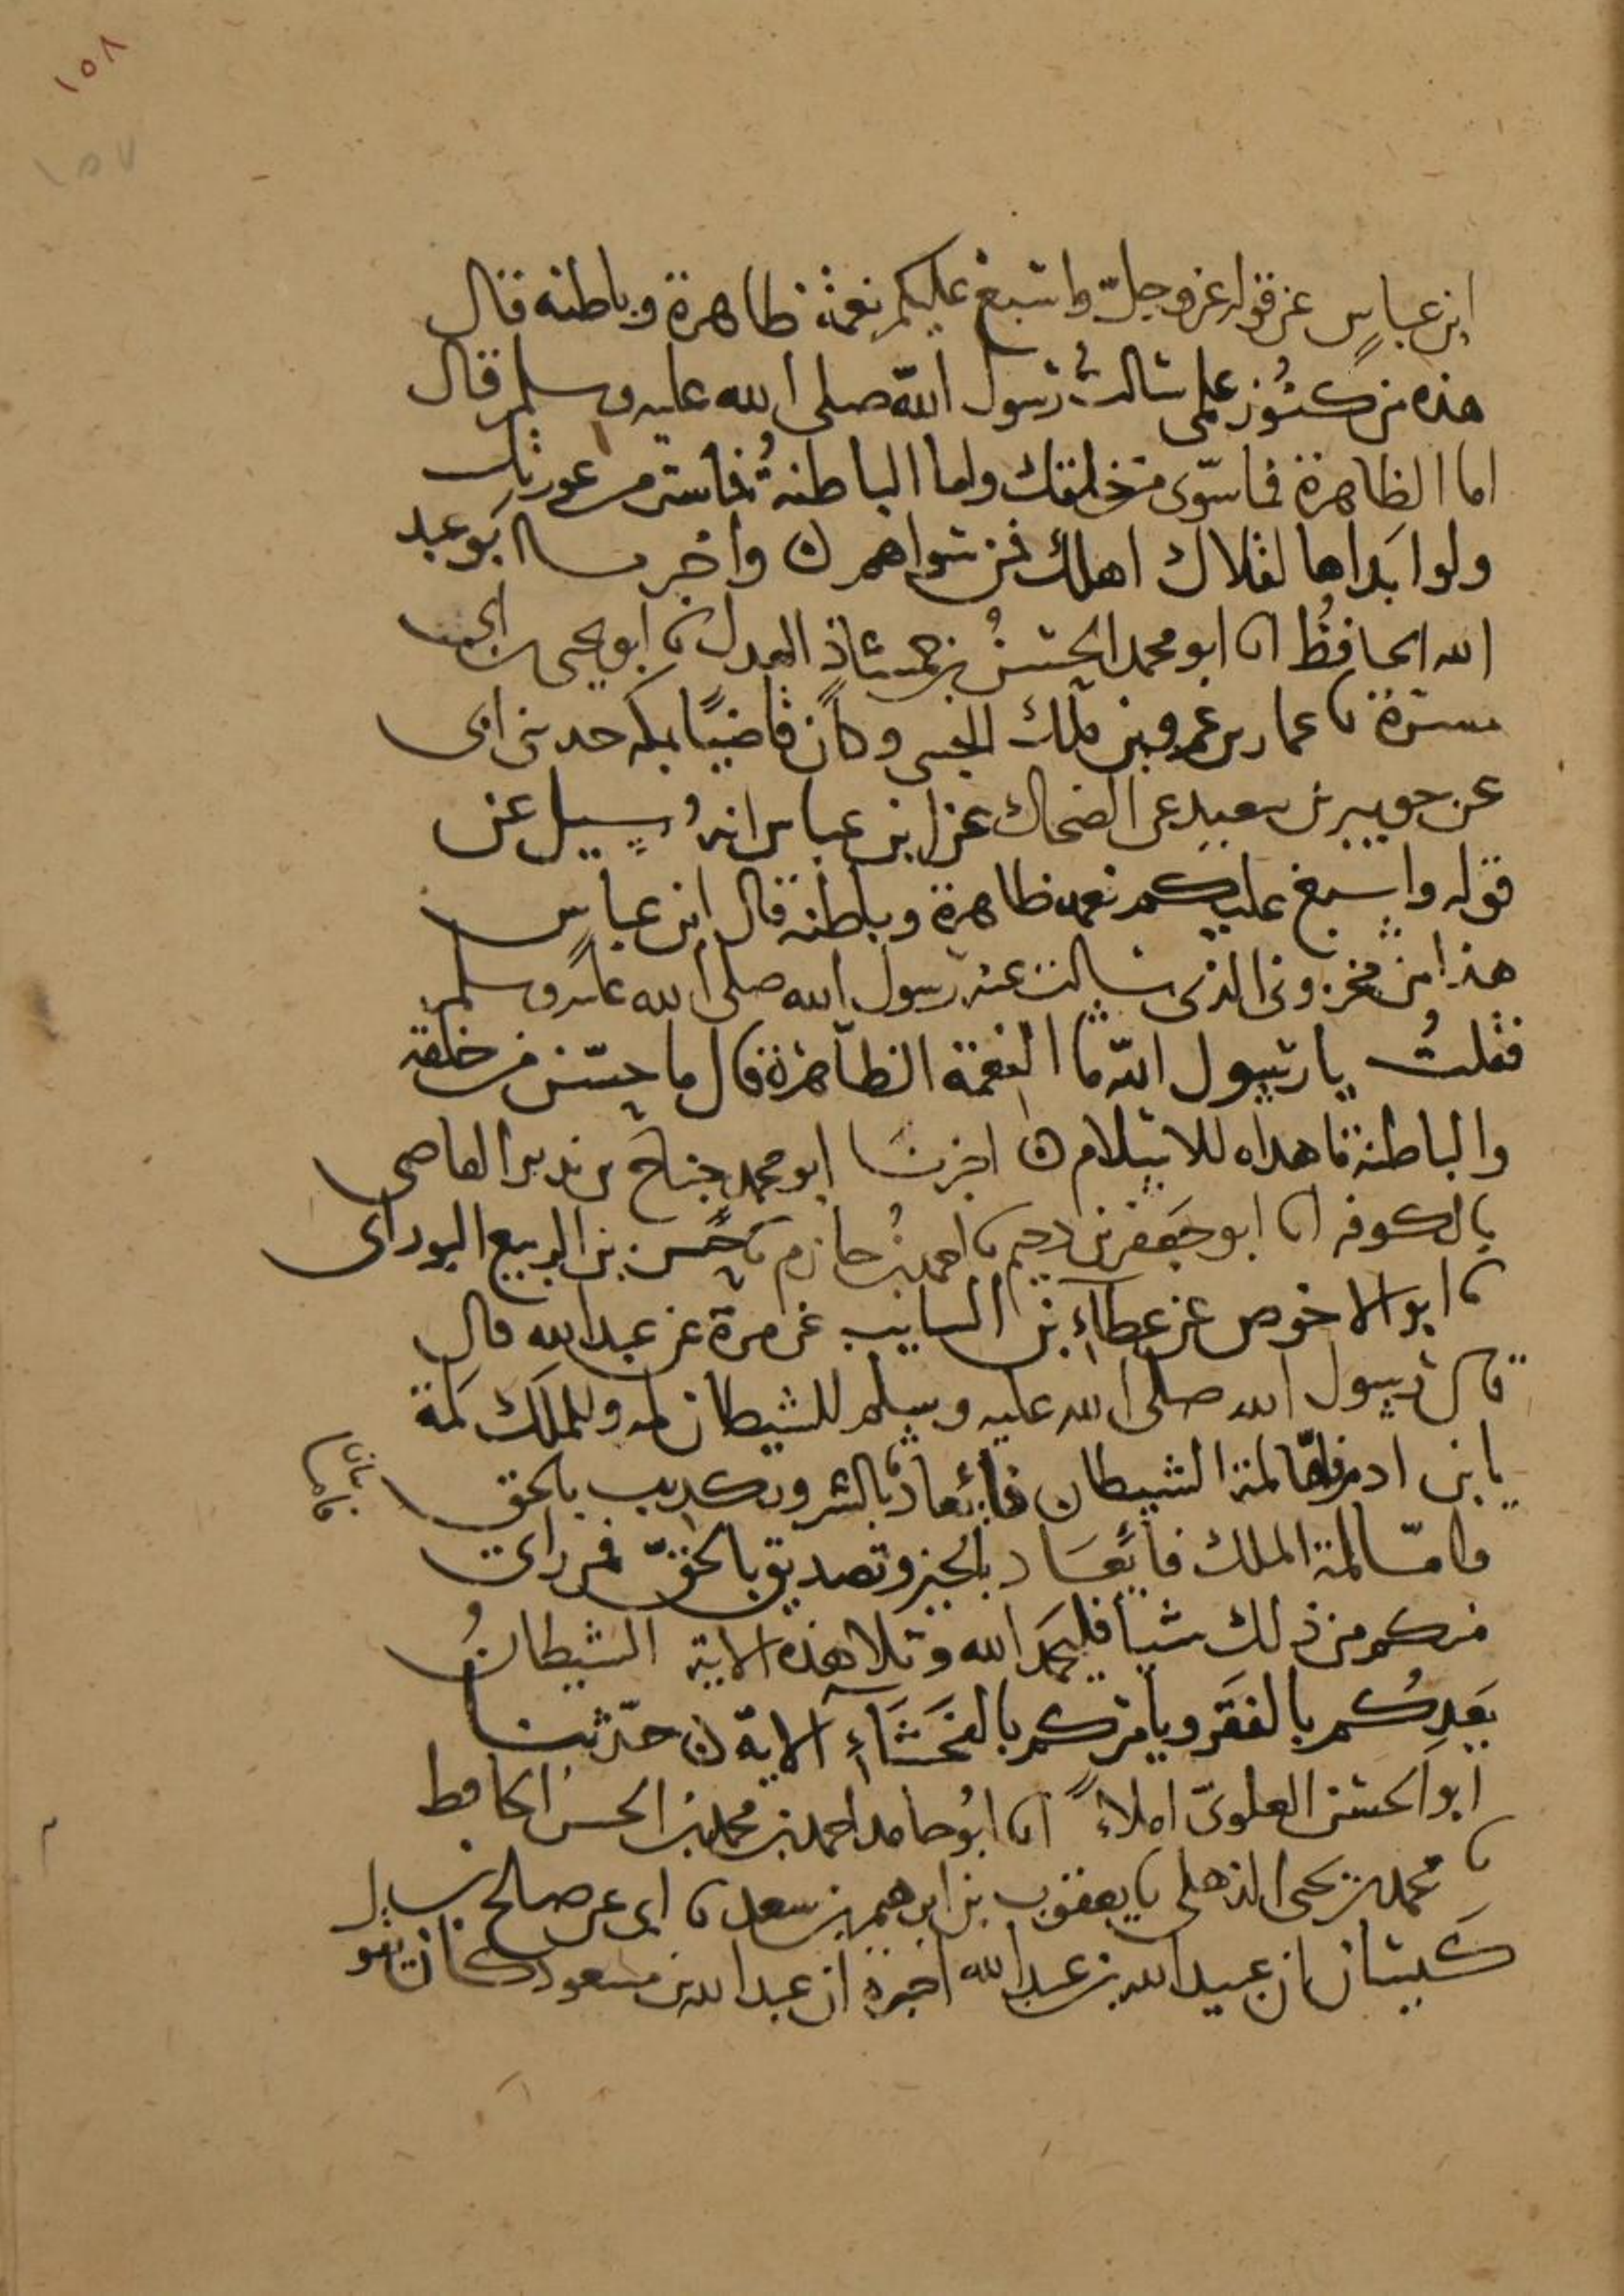 ١٥٨
١٥٧
ابن عباس عن قوله عز وجل واسبغ عليكم نعمه ظاهرة وباطنه قال
هذه من كنوز علمي سالت رسول الله صلى الله عليه وسلم قال
اما الظاهرة فما سوى من خلقك واما الباطنة فما ستر من عورتك
ولو ابداها لقلاك اهلك فمن سواهم ن واخبرنا ابو عبد
الله الحافظ انا ابو محمد الحسن بن حمشاذ العدل نا ابو يحيى بن ابي
مسرة نا عمار بن عمرو بن ملك الجنبي وكان قاضيا بمكه حدثني ابي
عن جويبر بن سعيد عن الضحاك عن ابن عباس انه سيل عن
قوله واسبغ عليكم نعمه ظاهرة وباطنه قال ابن عباس
هذا من مخزوني الذي سالت عنه رسول الله صلى الله عليه وسلم
فقلت يا رسول الله ما النعمة الظاهرة قال ما حسن من خلقه
والباطنة ما هداه للاسلام ن اخبرنا ابو محمد جناح بن نذير القاضي
بالكوفه انا ابو جعفر بن دحيم نا احمد بن حازم نا حسن بن الربيع البوراني
نا ابو الاحوص عن عطاء بن السايب عن مرة عن عبد الله قال
قال رسول الله صلى الله عليه وسلم للشيطان لمه وللملك لمة
يا بني ادم فاما لمة الشيطان فايعاد بالشر وتكذيب بالحق
واما لمة الملك فايعاد بالخير وتصديق بالحق فمن راى
منكم من ذلك شيا فليحمد الله وتلا هذه الاية الشيطان
يعدكم بالفقر ويامركم بالفحشاء الاية ن حدثنا
ابو الحسن العلوي املاء انا ابو حامد احمد بن محمد بن الحسن الحافظ
نا محمد بن يحيى الذهلي نا يعقوب بن ابرهيم بن سعد نا ابي عن صالح بن
كيسان ان عبيد الله بن عبد الله اخبره ان عبد الله بن مسعود كان يقو